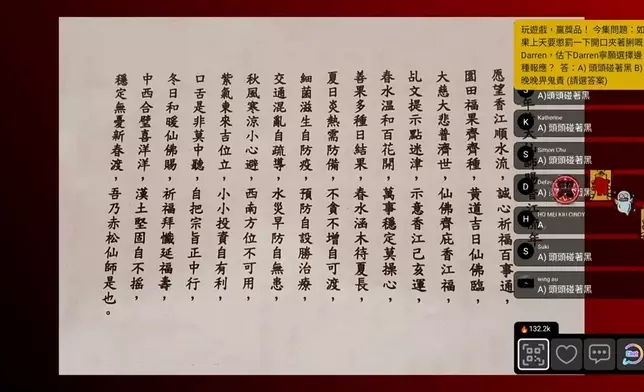 愿望香江順水流，誠心祈福百事通，
園田福果齊齊種，黃道吉日仙佛臨，
大慈大悲普濟世，仙佛齊庇香江福，
乩文提示點迷津，示意香江己亥運，
春水溫和百花開，萬事穩定莫操心，
善果多種日結果，春水涵木待夏長，
夏日炎熱需防備，不貪不增自可渡，
細菌滋生自防疫，預防自設勝治療，
交通混亂自疏導，水災早防自無患，
秋風寒涼小心避，西南方位不可用，
紫氣東來吉位立，小小投資自有利，
口舌是非莫中聽，自把宗旨正中行，
冬日和暖仙佛賜，祈福拜懺延福壽，
中西合壁喜洋洋，漢土堅固自不搖，
穩定無憂新春渡，吾乃赤松仙師是也。
玩遊戲，贏獎品！ 今集問題：如
果上天要懲罰一下開口夾著脷嘅
Darren，估下Darren寧願選擇邊
種報應？ 答：A) 頭頭碰著黑 B)
晚晚畀鬼責 (請選答案)
S
A) 頭頭碰著黑
K
Katherine
A) 頭頭碰著黑
S
Simon Chu
A) 頭頭碰著黑
D
H
A
S
Suki
A) 頭頭碰著黑
wing au
A) 頭頭碰著黑
132.2k